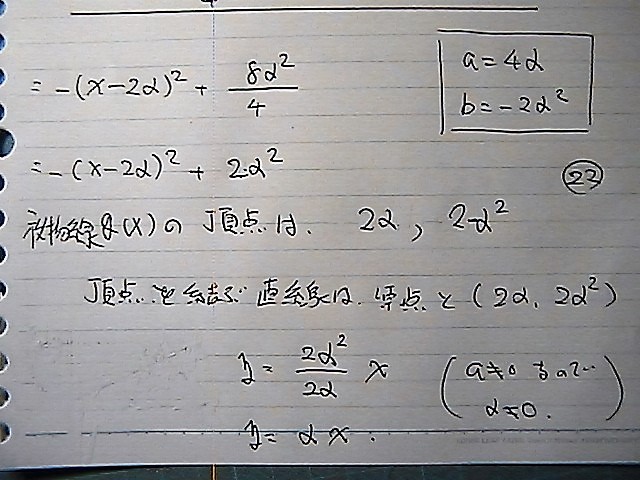 = -(x-2α)² + 8α²/4
a = 4α
b = -2α²
= -(x-2α)² + 2α²
22
放物線g(x)の頂点は、 2α, 2α²
頂点を結ぶ直線は、原点と(2α, 2α²)
y = 2α²/2α x (a≠0 なので α≠0.)
y = αx.